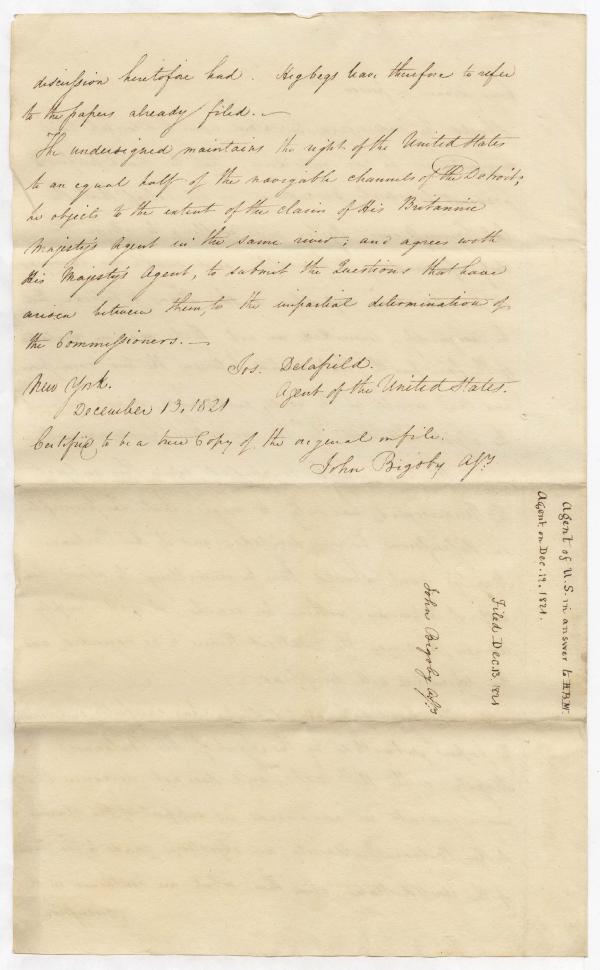 discussion heretofore had. He begs leave therefore to refer
to the papers already filed. —
The undersigned maintains the right of the United States
to an equal half of the navigable channels of the Detroit;
he objects to the extent of the claim of His Britannic
Majesty's Agent in the same river; and agrees with
His Majesty's Agent, to submit the Questions that have
arisen between them, to the impartial determination of
the Commissioners. —
Jos. Delafield.
Agent of the United States.
New York.
December 13, 1821
Certified to be a true Copy of the original on file.
John Bigsby Assy
Agent of U.S. in answer to H.B.M.
Agent on Dec. 12. 1821.
Filed Dec. 13. 1821
John Bigsby Assy